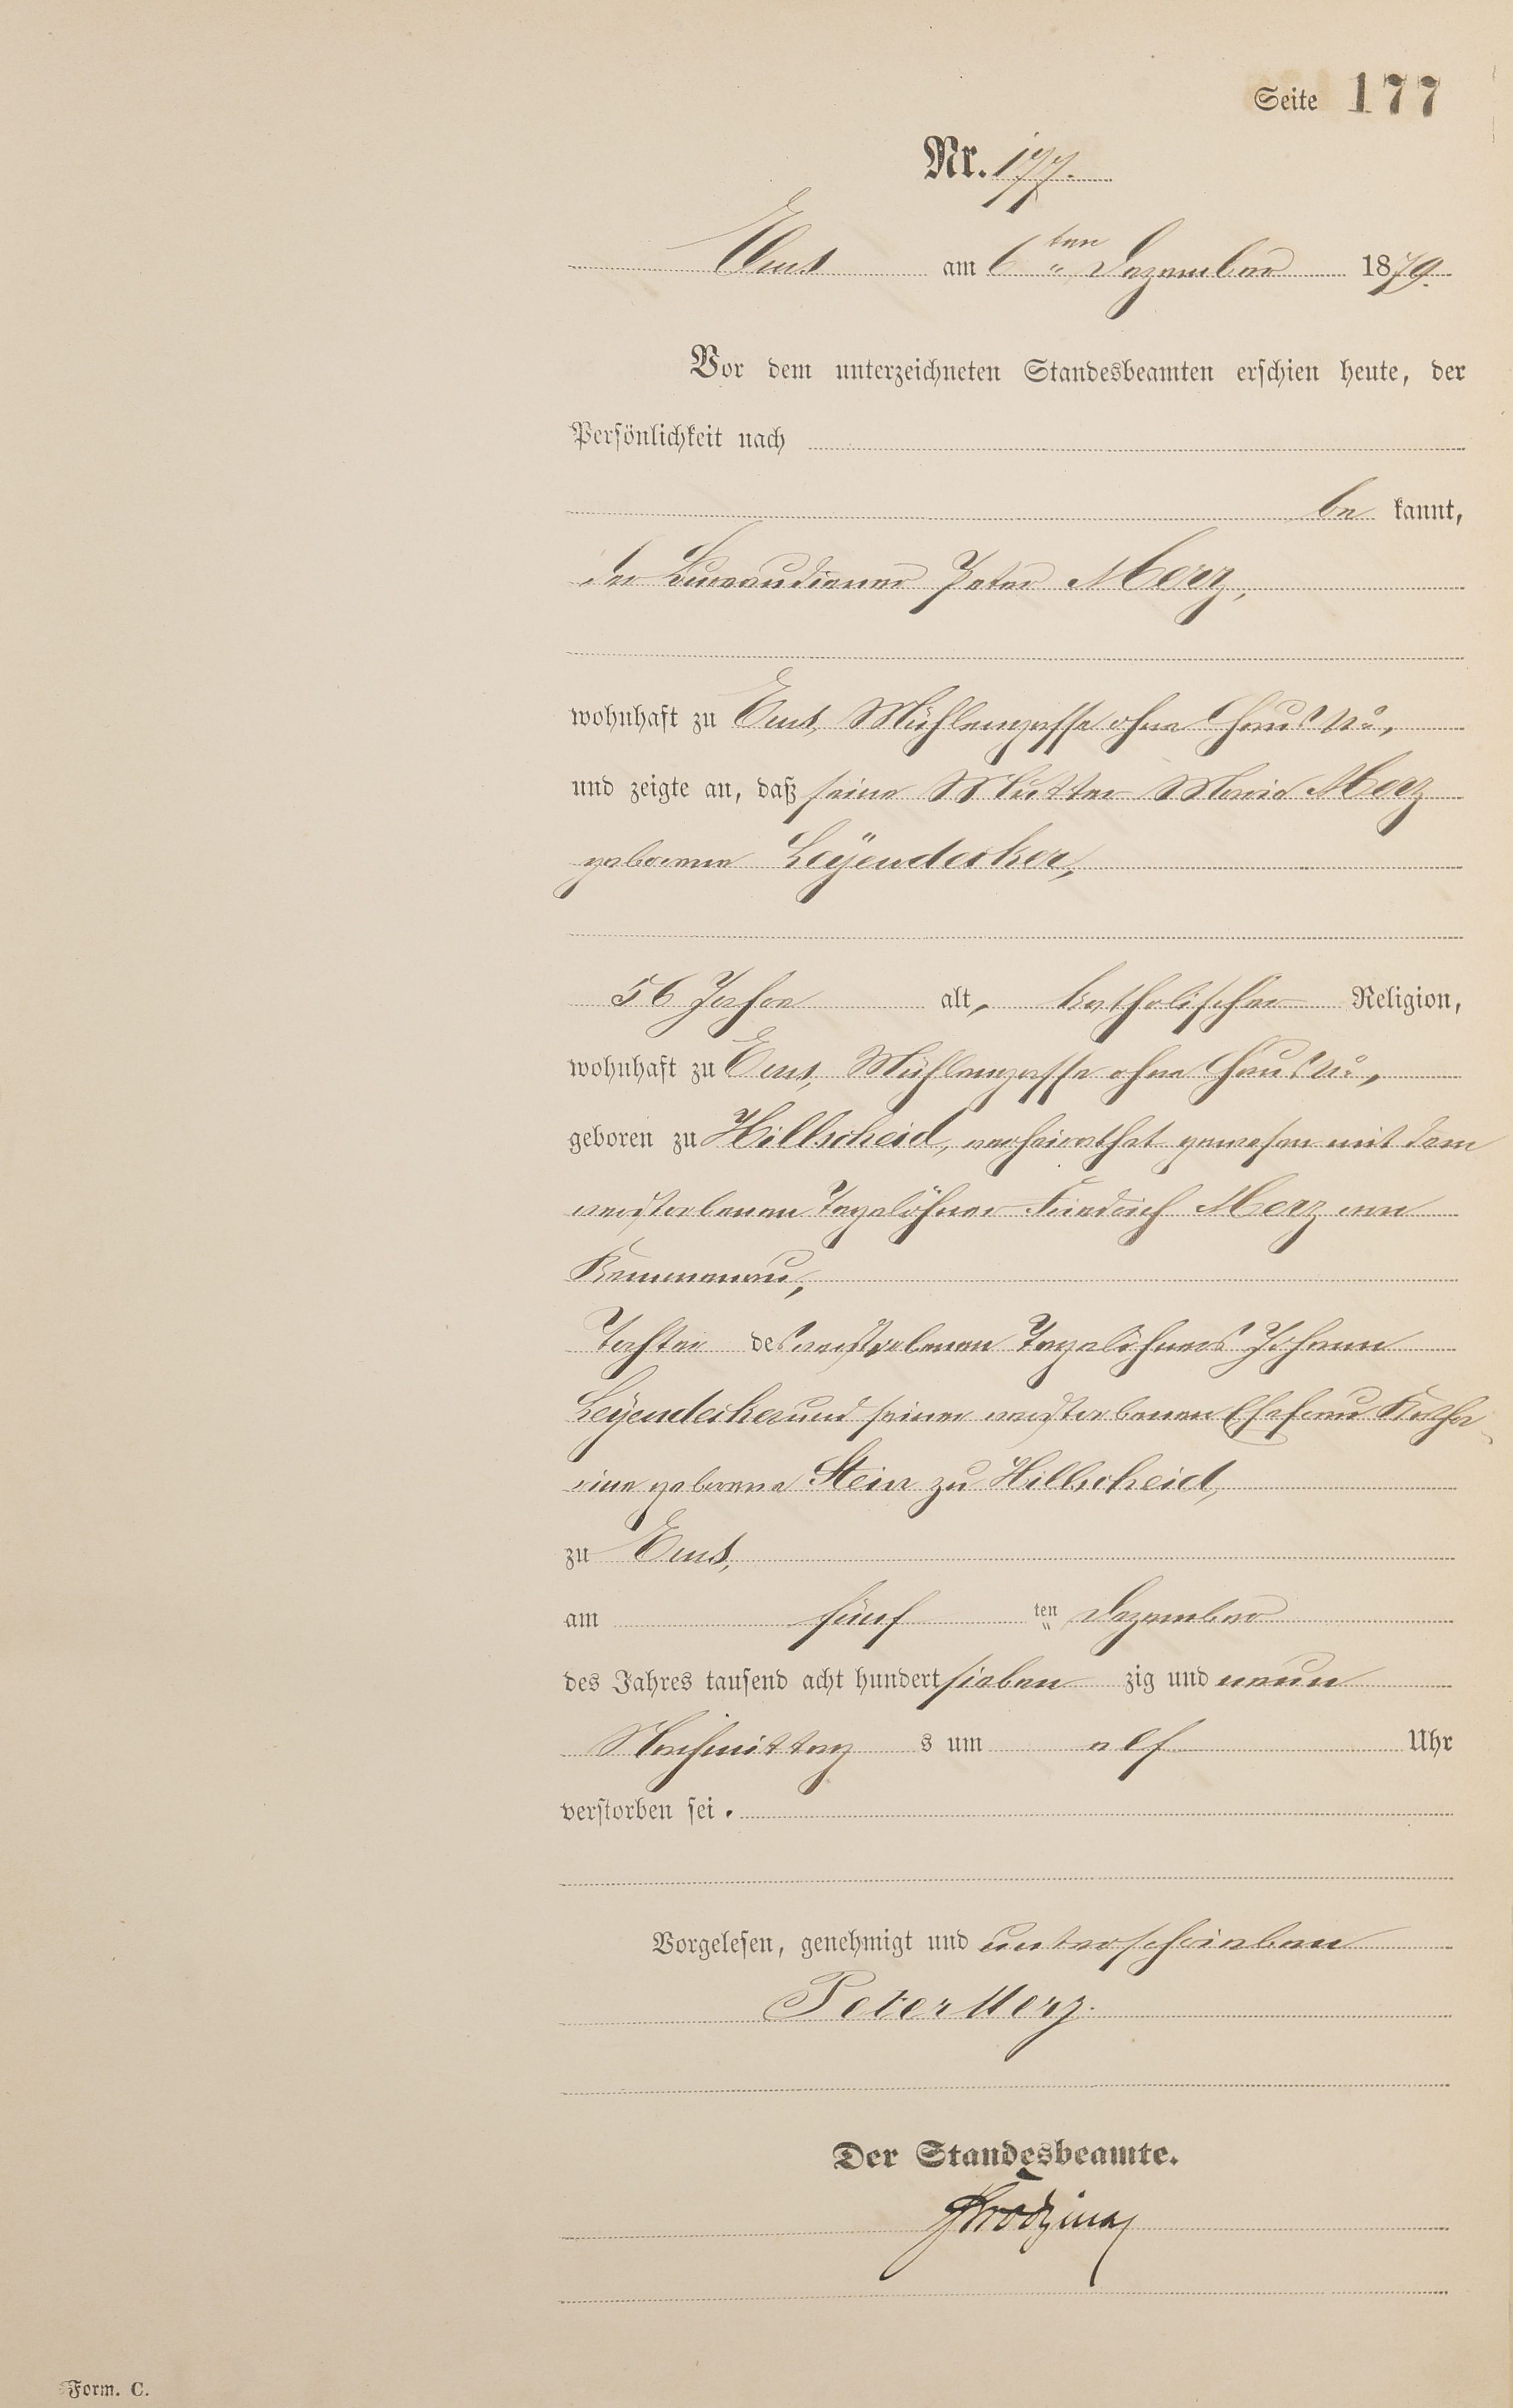 Seite 177
Nr. 177.
Ems am 6ten Dezember 1879.
Vor dem unterzeichneten Standesbeamten erschien heute, der
Persönlichkeit nach
be kannt,
der Bureaudiener Peter Merz,
wohnhaft zu Ems, Mühlengasse ohne Haus No,
und zeigte an, daß seine Mutter Maria Merz
geborene Leÿendecker,
56 Jahre alt, katholischer Religion,
wohnhaft zu Ems, Mühlengasse ohne Haus No,
geboren zu Hillscheid, verheirathet gewesen mit dem
verstorbenen Tagelöhner Friedrich Merz von
Kemmenau,
Tochter des verstorbenen Tagelöhners Johann
Leÿendecker und seiner verstorbenen Ehefrau Katha
rina geborene Stein zu Hillscheid,
zu Ems,
am fünf ten Dezember
des Jahres tausend acht hundert sieben zig und neun
Nachmittag s um elf Uhr
verstorben sei.
Vorgelesen, genehmigt und unterschrieben
Peter Merz.
Der Standesbeamte.
Form. C.